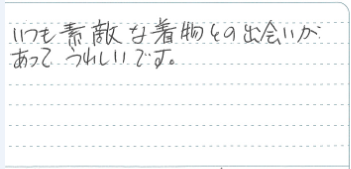 いつも素敵な着物との出会いが
あってうれしいです。